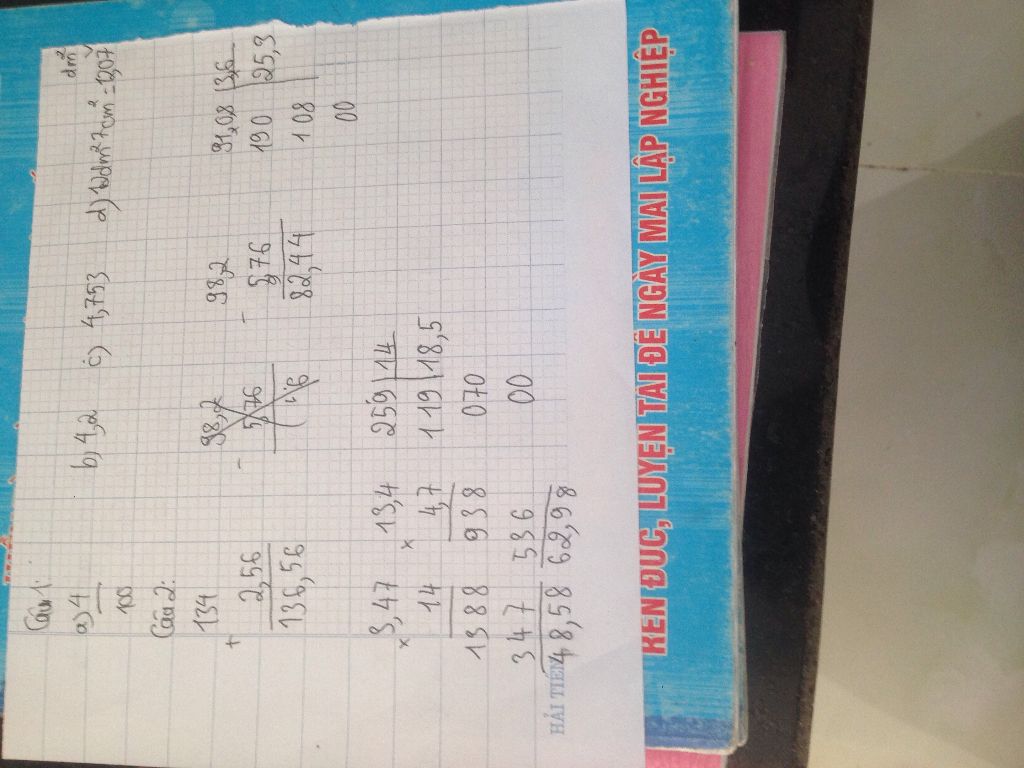 Câu 1:
a) 4/100 b) 4,2 c) 4,753 d) 12dm² 7cm² = 12,07 dm²
Câu 2:
134 + 2,56 = 136,56
98,2 - 5,76
98,2 - 5,76 = 82,44
91,08 | 3,6
190 | 25,3
108
00
3,47 × 14
1388
347
48,58
13,4 × 4,7
938
536
62,98
259 | 14
119 | 18,5
070
00
HẢI TIẾN
RÈN ĐỨC, LUYỆN TÀI ĐỂ NGÀY MAI LẬP NGHIỆP